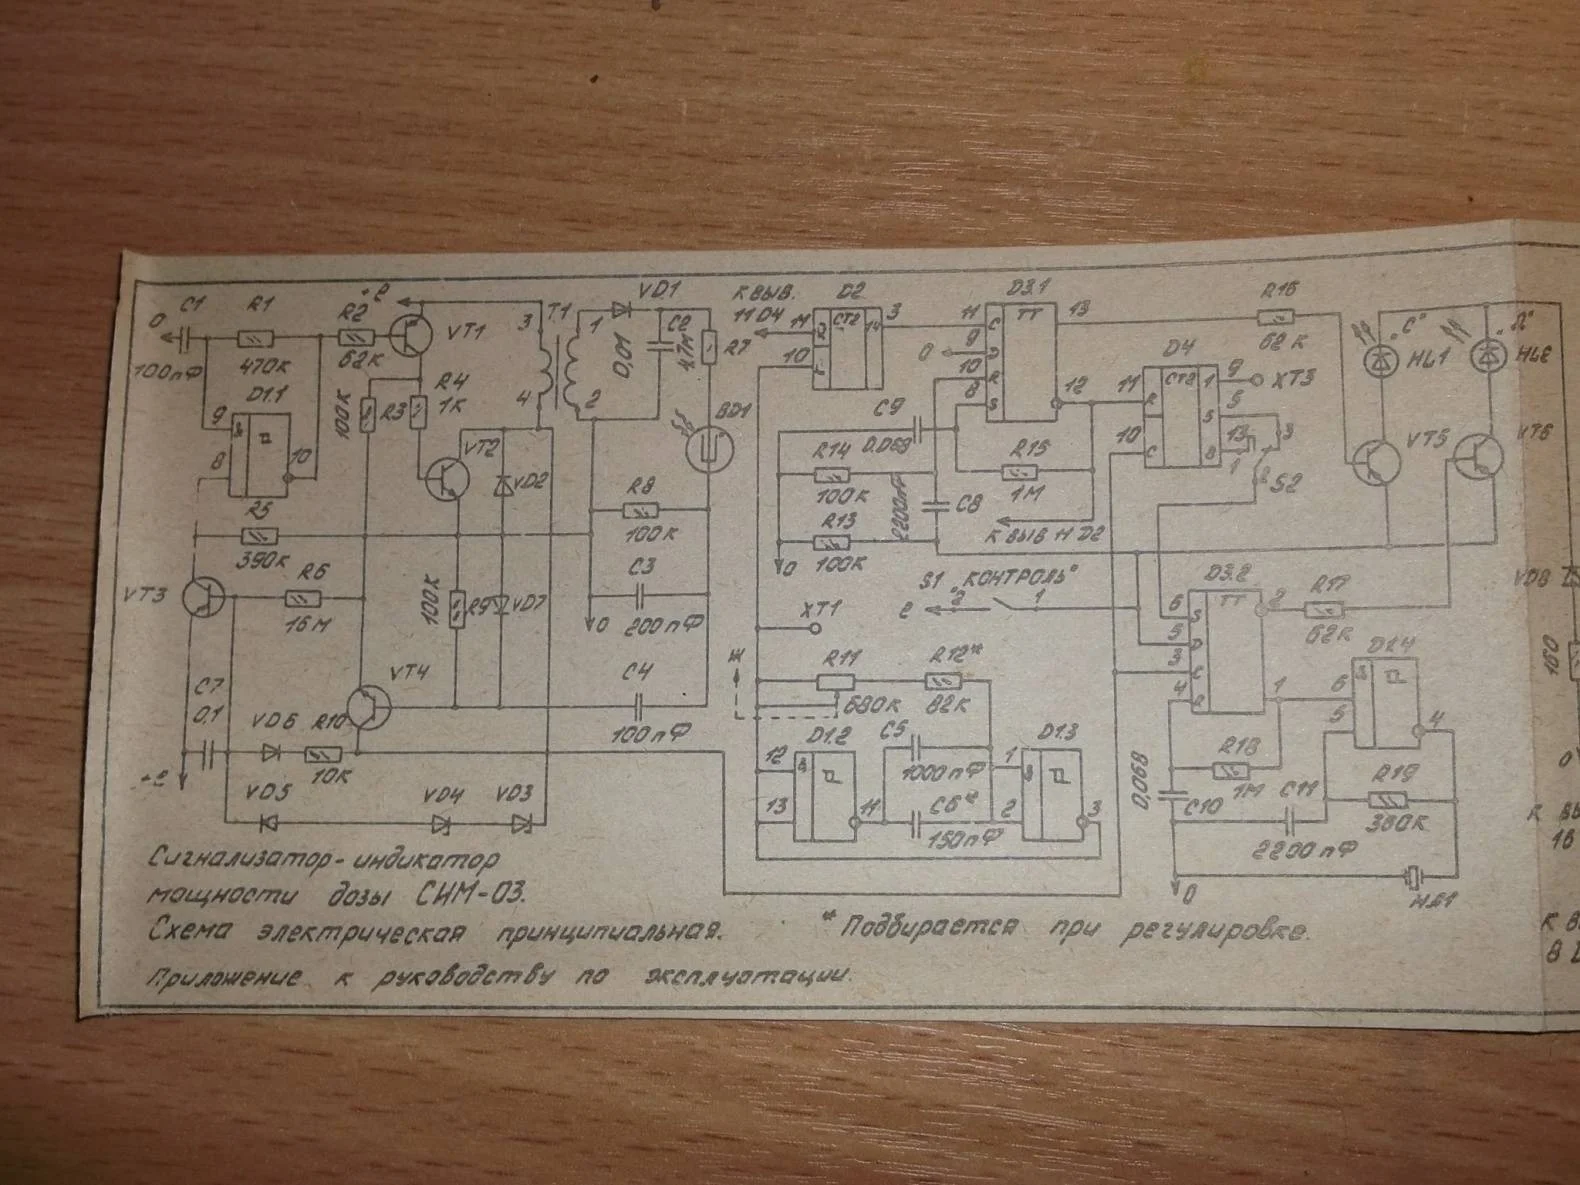 C1
R1
0
100пФ
470К
R2
62К
+е
VT1
D1.1
9
8
10
&
R3
100К
R4
1К
VT2
VD2
R5
390К
VT3
R6
16М
100К
R9
VD7
VT4
C7
0,1
+е
VD6
R10
10К
VD5
VD4
VD3
T1
3
4
1
2
VD1
C2
0,01
R7
47М
BD1
R8
100К
C3
200пФ
0
C4
100пФ
К ВЫВ.
11 D4
D2
11
10
R
СТ2
14
3
D3.1
ТТ
11
9
10
8
C
D
R
S
13
12
0
C9
0.068
R14
100К
R13
100К
0
2200пФ
C8
R15
1М
К ВЫВ 11 D2
S1 „КОНТРОЛЬ"
е
2
1
XT1
Ж
R11
680К
R12*
82К
C5
1000пФ
C6*
150пФ
D1.2
12
13
&
11
D1.3
1
2
&
3
D4
СТ2
11
10
R
C
1
5
8
9
XT3
5
13
3
1
2
S2
R16
62К
HL1
„С"
HL2
VT5
VT6
D3.2
ТТ
6
5
3
4
S
D
C
R
2
1
R17
62К
D1.4
6
5
&
4
R18
1М
0,068
C10
C11
2200пФ
R19
380К
0
HA1
VD8
160
0
16
К В
8
Сигнализатор-индикатор
мощности дозы СИМ-03.
Схема электрическая принципиальная.
*Подбирается при регулировке.
Приложение к руководству по эксплуатации.